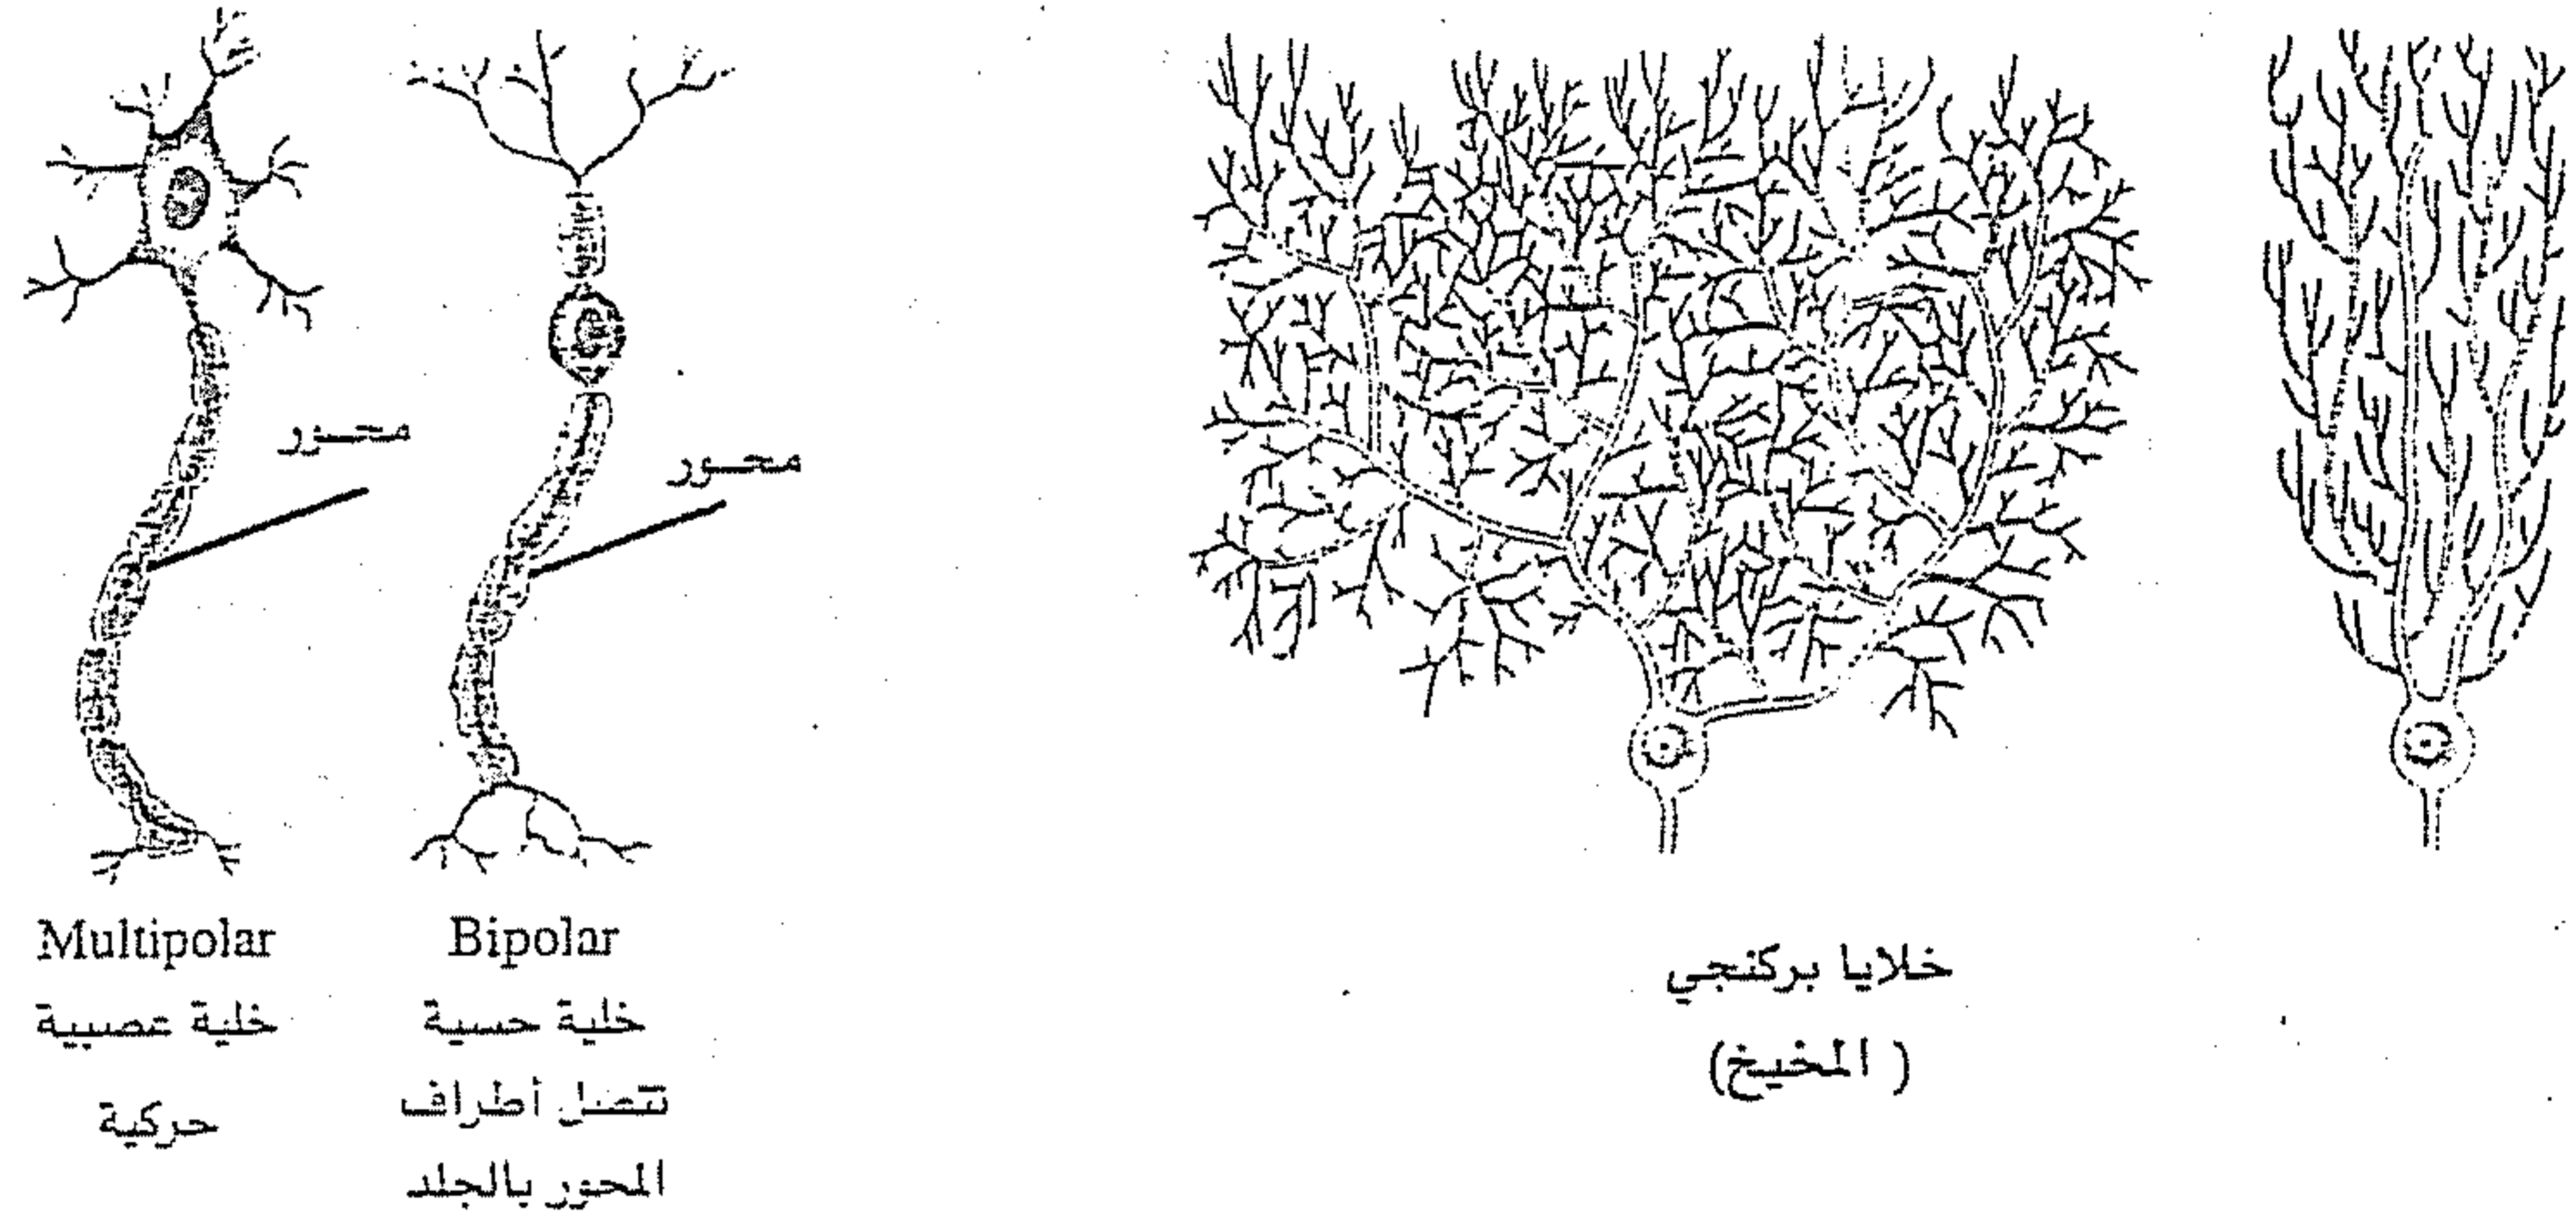 محور
محور
Multipolar
خلية عصبية
حركية
Bipolar
خلية حسية
تتصل أطراف
المحور بالجلد
خلايا بركنجي
( المخيخ)